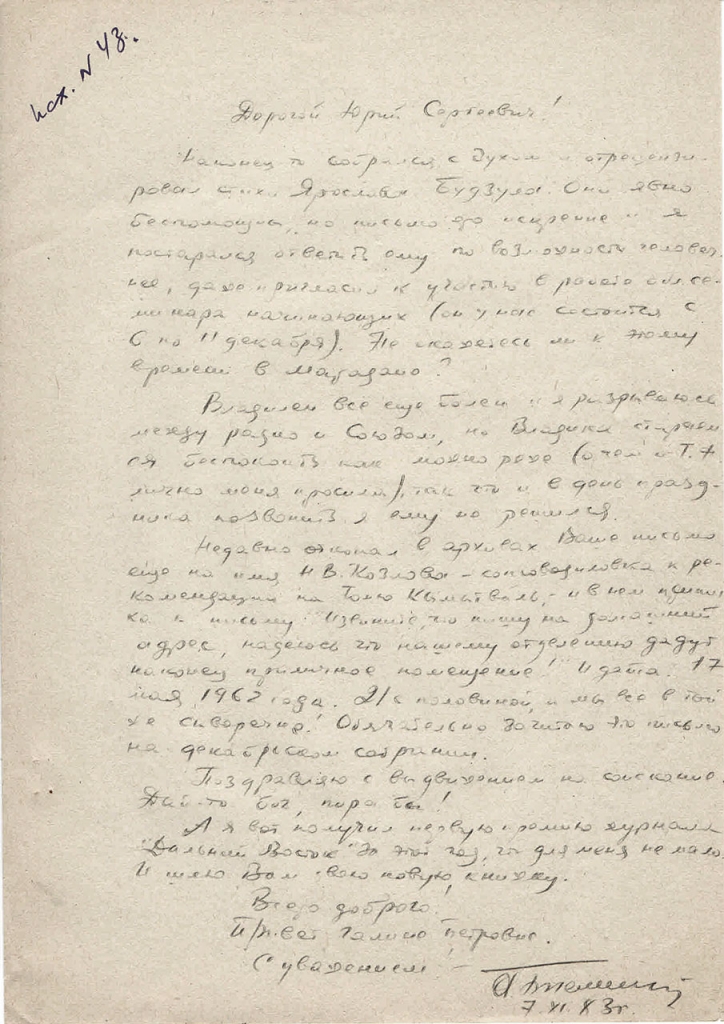 исх. N 43.
Дорогой Юрий Сергеевич!
Наконец-то собрался с духом и отрецензи-
ровал стихи Ярослава Будзула. Они явно
беспомощны, но письмо-то искреннее и я
постарался ответить ему по возможности человеч-
нее, даже пригласил к участию в работе
минара начинающих (он у нас состоится с
6 по 11 декабря). Не окажетесь ли к этому
времени в Магадане?
Владилен всё ещё болен и я разрываюсь
между радио и Союзом, но Владика стараем-
ся беспокоить как можно реже (о чём и Т.
лично меня просила), так что и в день празд-
ника позвонить я ему не решился.
Недавно откопал в архивах Ваше письмо
ещё на имя Н.В. Козлова – сопроводиловка к ре-
комендации на Тоню Кымытваль, – и в нём припис-
ка к письму "Извините, что пишу на домашний
адрес, надеюсь что нашему отделению дадут
наконец приличное помещение! И дата: 17
мая 1962 года. 21 с половиной, и мы все в той
же скворечне! Обязательно зачитаю это письмо
на декабрьском собрании.
Поздравляю с выдвижением на соискание.
Дай-то бог, пора бы!
А я вот получил первую премию журнала
"Дальний Восток" за этот год, что для меня не мало.
И шлю Вам свою новую книжку.
Всего доброго.
Привет Галине Петровне.
С уважением –
7 XI 83г.